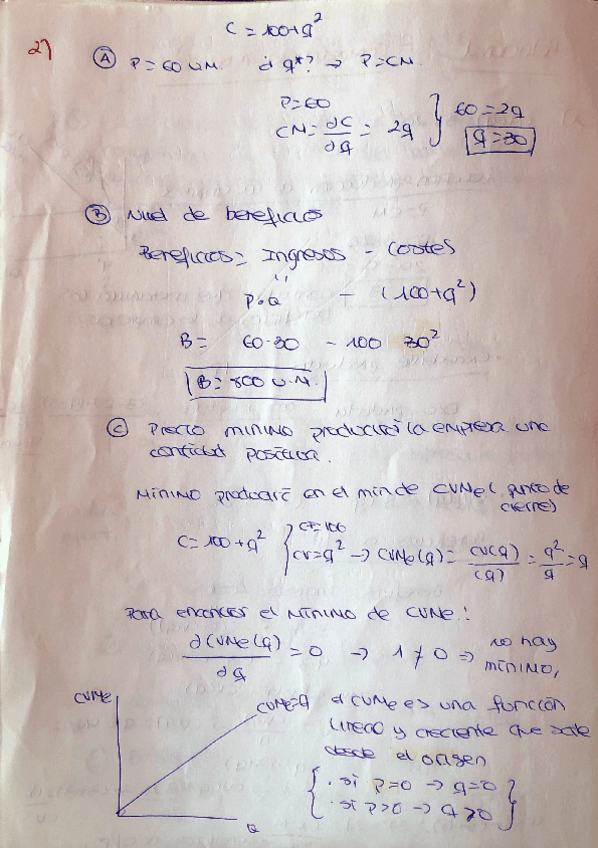 C = 100+q²
27
Ⓐ P = 60 U.M. ¿ q*? → P=CM.
P=60
CM = ∂C/∂q = 2q } 60 = 2q
q=30
Ⓑ Nivel de beneficios
Beneficios = Ingresos - Costes
P.Q - (100+q²)
B = 60·30 - 100 30²
B = 800 U.M.
Ⓒ Precio mínimo producirá la empresa una
cantidad positiva.
Mínimo producirá en el min de CVMe ( punto de
cierre)
C = 100 + q² { CF=100
CV = q² → CVMe(q) = CV(q)/(q) = q²/q = q
Para encontrar el Mínimo de CVMe:
∂CVMe(q)/∂q = 0 → 1 ≠ 0 ⇒ no hay
mínimo,
CVMe
CVMe=q
el CVMe es una función
lineal y creciente que sale
desde el origen
{ . si P=0 → q=0
. si P>0 → q>0 }
Q